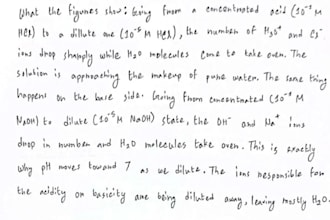 What the figures show: Going from a concentrated acid (10⁻² M
HCl) to a dilute one (10⁻⁵ M HCl), the number of H₃O⁺ and Cl⁻
ions drop sharply while H₂O molecules come to take over. The
solution is approaching the makeup of pure water. The same thing
happens on the base side. Going from concentrated (10⁻² M
NaOH) to dilute (10⁻⁵ M NaOH) state, the OH⁻ and Na⁺ ions
drop in number and H₂O molecules take over. This is exactly
why pH moves toward 7 as we dilute. The ions responsible for
the acidity or basicity are being diluted away, leaving mostly H₂O.